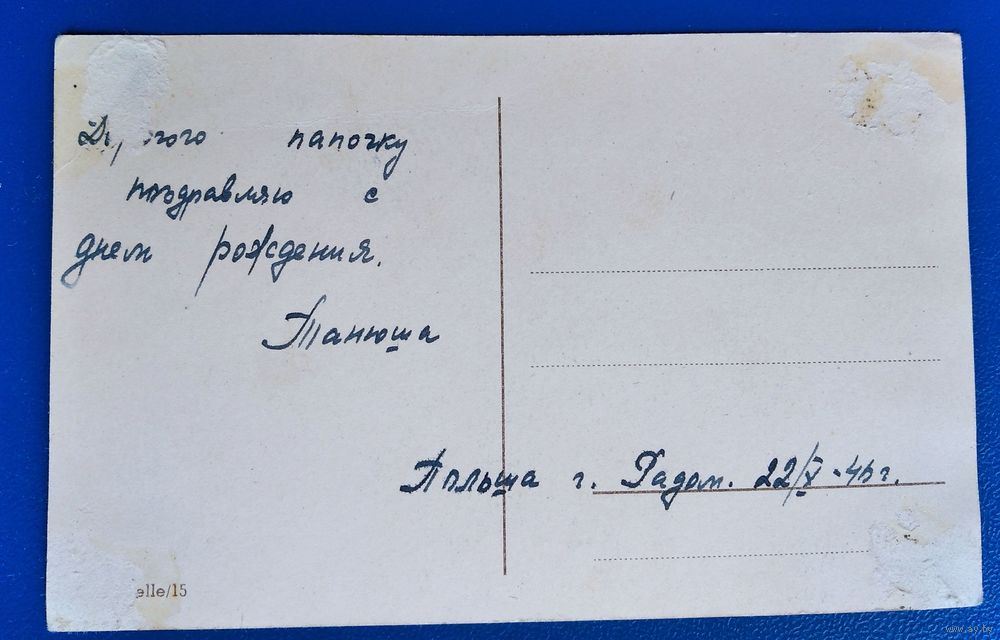 папочку
поздравляю с
днем рождения.
Танюша
Польша г. Радом. 22/X-45г.
elle/15
www.ay.by